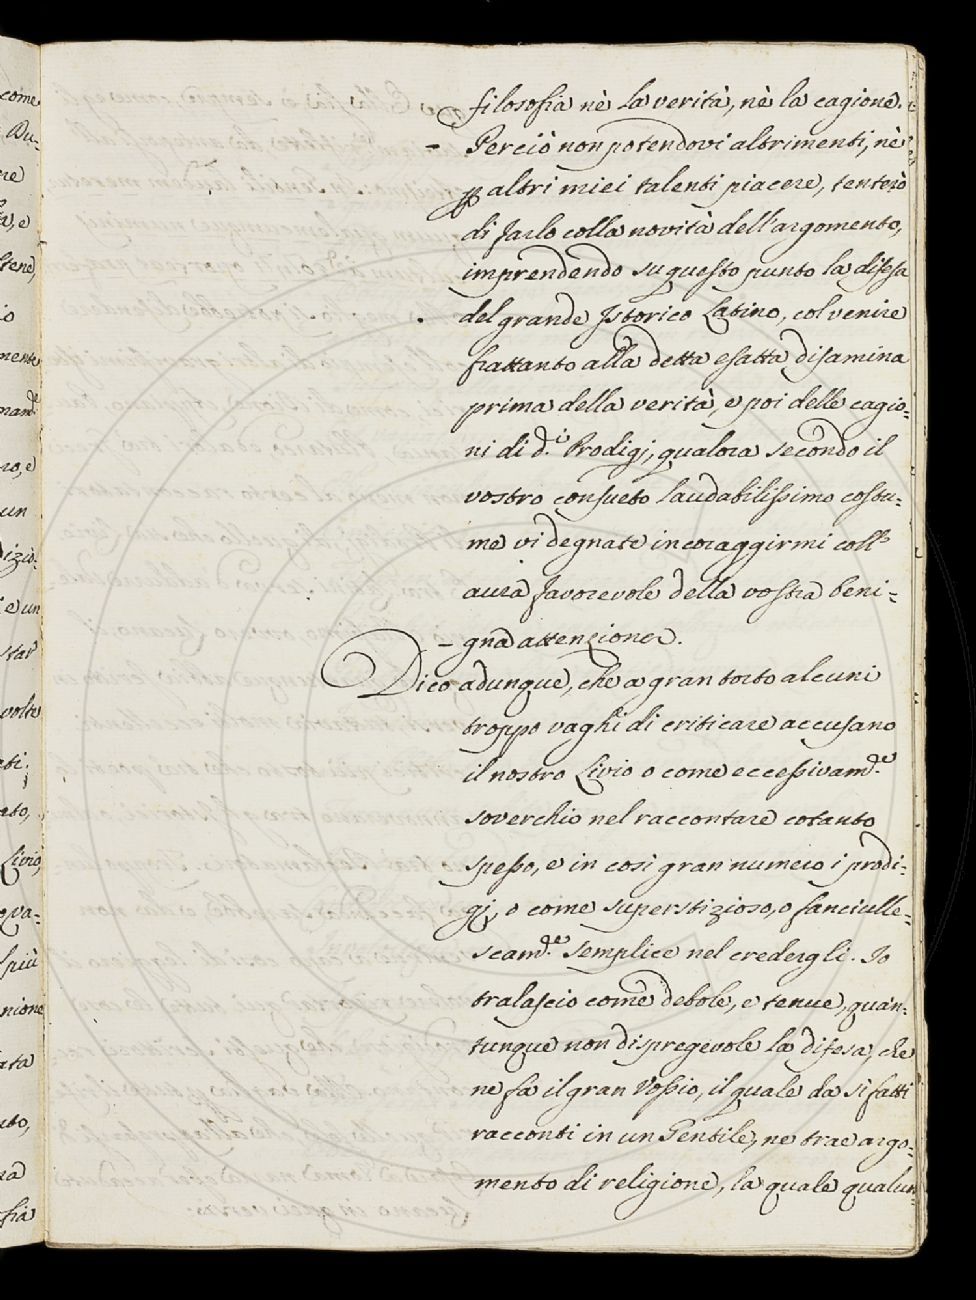 filosofia nè la verità, nè la cagione.
Perciò non potendovi altrimenti, nè
p altri miei talenti piacere, tenterò
di farlo colla novità dell'argomento,
imprendendo su questo punto la difesa
del grande Istorico Latino, col venire
frattanto alla detta esatta disamina
prima della verità, e poi delle cagio-
ni di d.i Prodigj, qualora secondo il
vostro consueto laudabilissimo costu-
me vi degnate incoraggirmi coll'
aura favorevole della vostra beni-
gna attenzione.
Dico adunque, che a gran torto alcuni
troppo vaghi di criticare accusano
il nostro Livio o come eccessivam.de
soverchio nel raccontare cotanto
spesso, e in così gran numero i prodi-
gj, o come superstizioso, o fanciulle-
scam.de semplice nel credergli. Io
tralascio come debole, e tenue, quan-
tunque non dispregevole la difesa, che
ne fa il gran Vossio, il quale da sì fatti
racconti in un Gentile, ne trae argo-
mento di religione, la quale qualun-